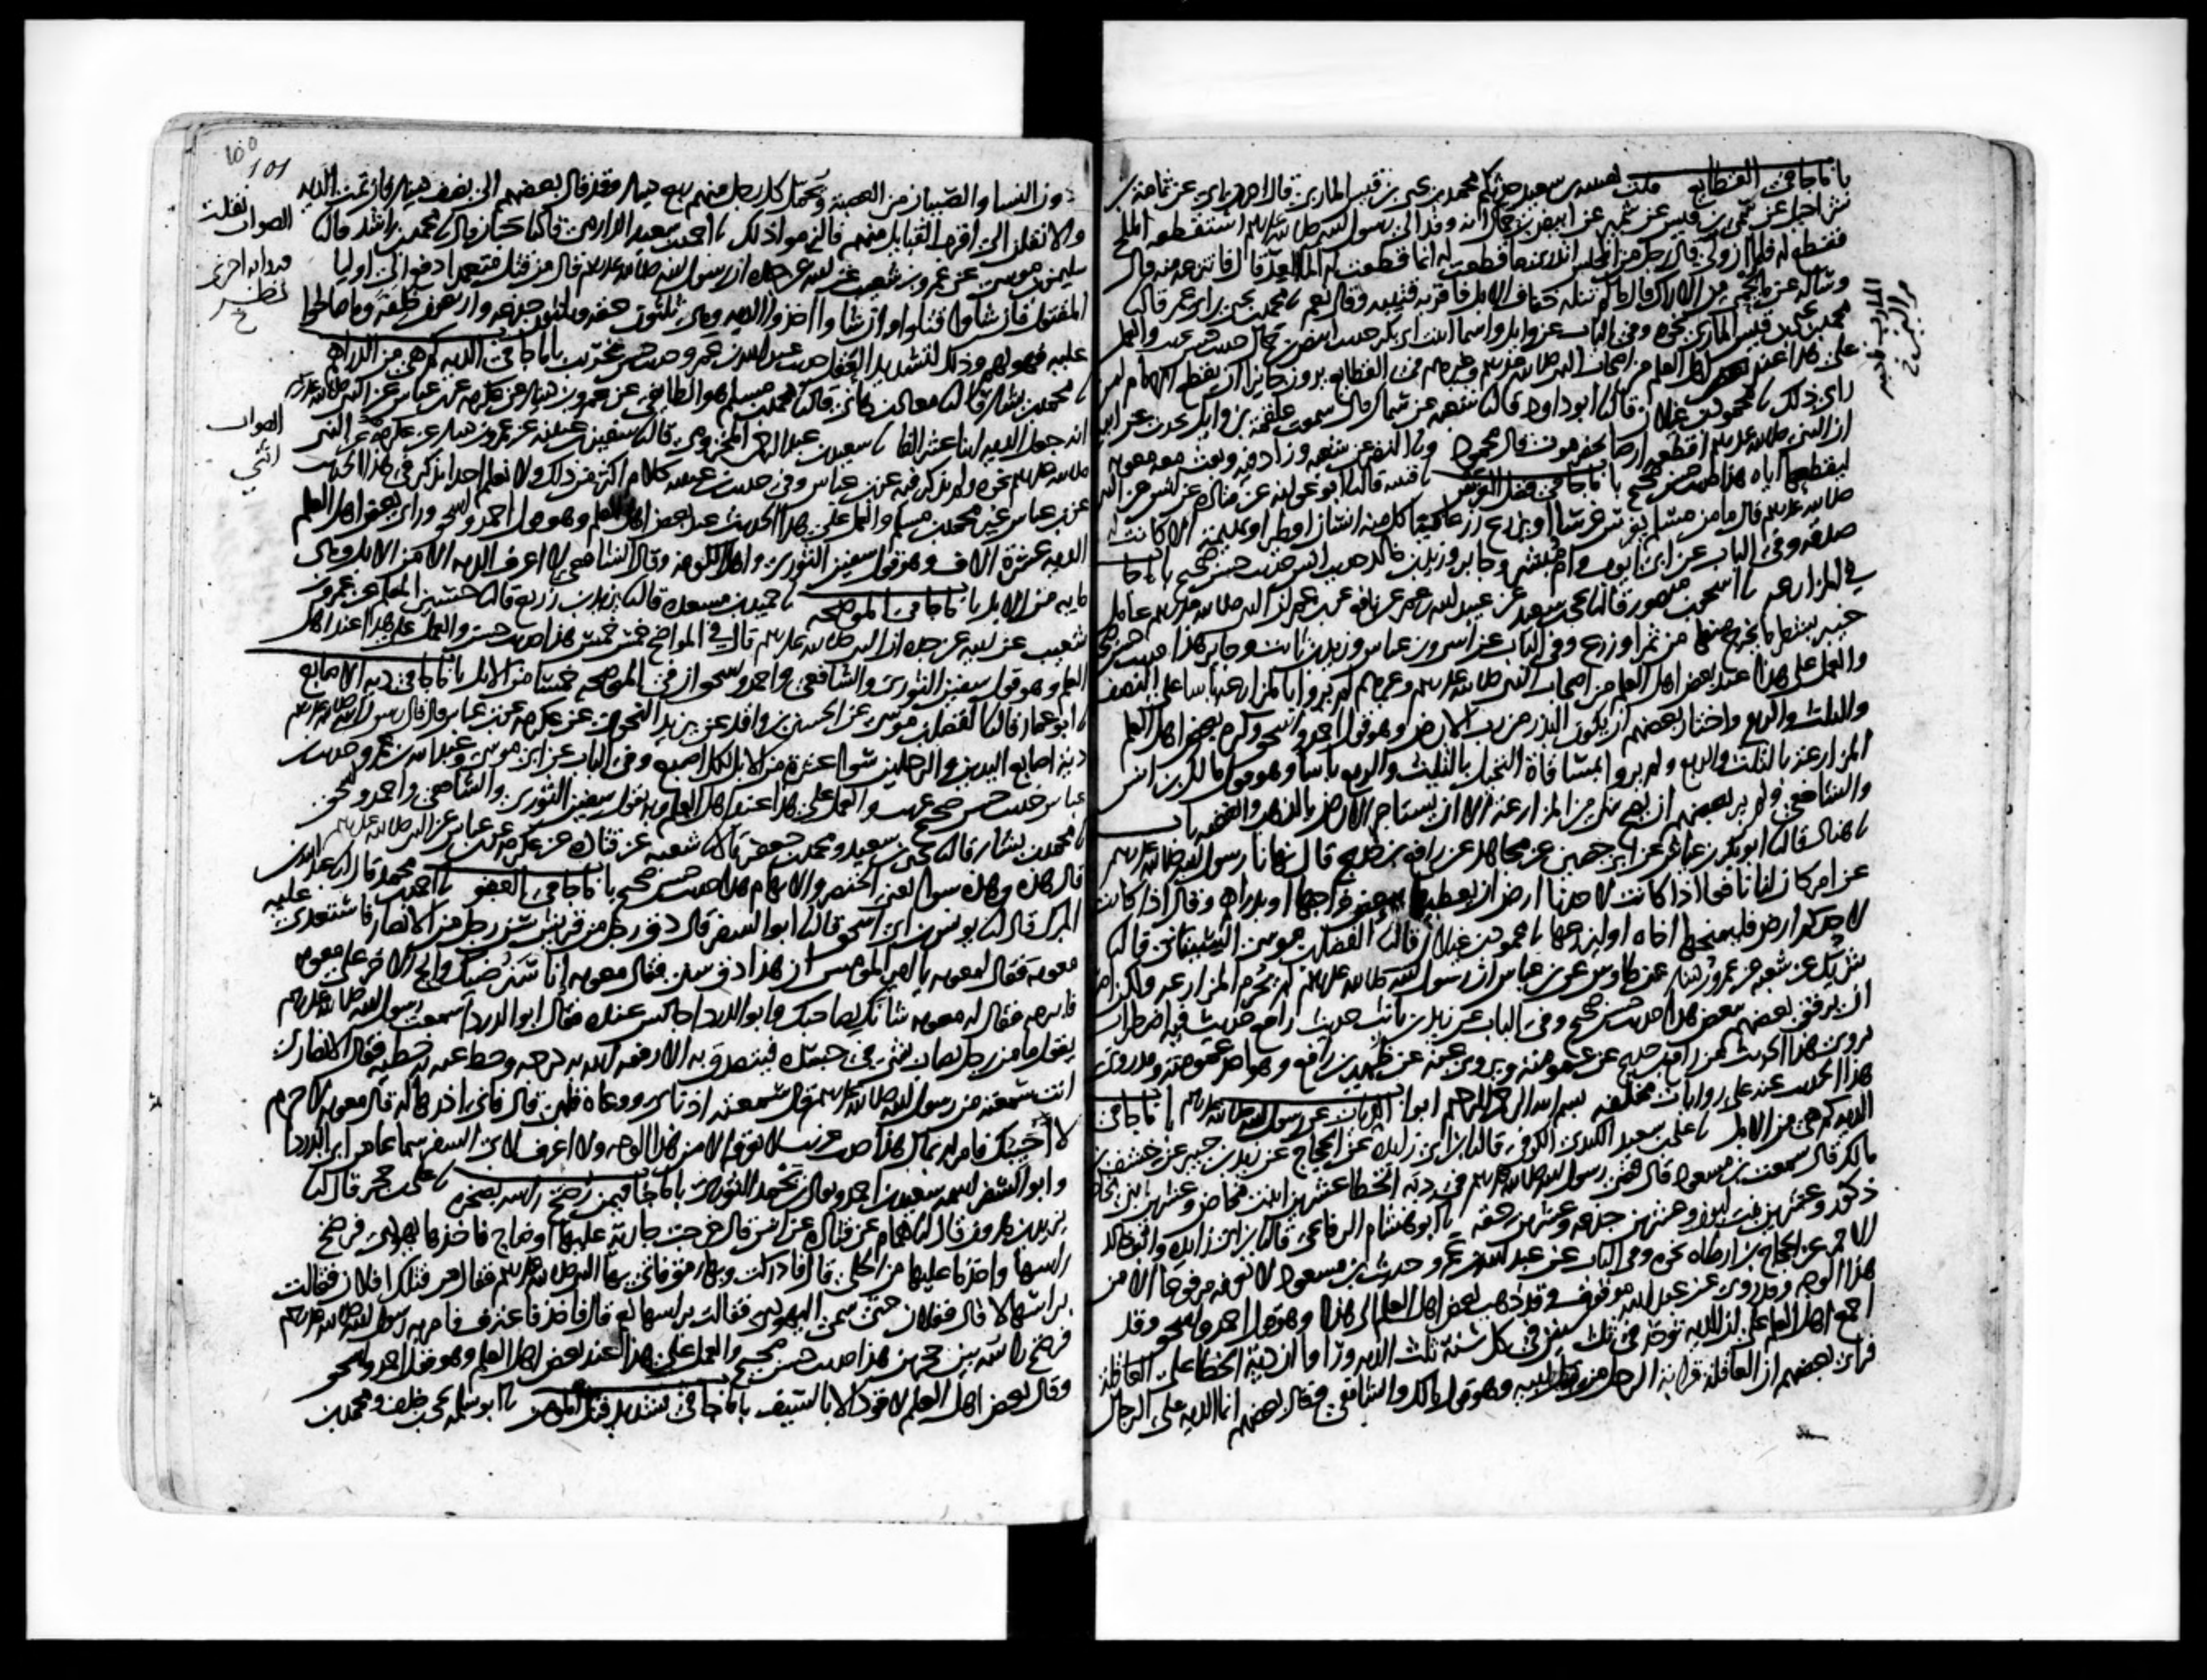 باب ما جا في القطايع قلت لقتيبه بن سعيد حدثكم محمد بن يحيى بن قيس الماربي قال اخبرني ابي عن ثمامة بن
شراحيل عن سمي بن قيس عن شمير عن ابيض بن حمال انه وفد الى رسول الله صلى الله عليه وسلم استقطعه الملح
فقطع له فلما ان ولى قال رجل من المجلس اتدري ما قطعت له انما قطعت له الما العد قال فانتزعه منه قال
وساله عن ما يحمى من الاراك قال ما لم تنله خفاف الابل فاقر به قتيبه وقال نعم نا محمد بن يحيى بن ابي عمر قال نا
محمد بن يحيى بن قيس الماربي نحوه وفي الباب عن وايل واسما ابنت ابي بكر حديث ابيض بن حمال حديث حسن غريب والعمل
على هذا عند بعض اهل العلم من اصحاب النبي صلى الله عليه وسلم وغيرهم في القطايع يرون جايزا ان يقطع الامام لمن
راى ذلك نا محمود بن غيلان قال نا ابو داود قال نا شعبه عن سماك قال سمعت علقمة بن وايل يحدث عن ابيه
ان النبي صلى الله عليه وسلم اقطعه ارضا بحضرموت قال محمود ونا النضر عن شعبه وزاد فيه وبعث معه معويه
ليقطعها اياه هذا حديث حسن صحيح باب ما جا في فضل الغرس نا قتيبه قال نا ابو عوانه عن قتاده عن انس عن النبي
صلى الله عليه وسلم قال ما من مسلم يغرس غرسا او يزرع زرعا فياكل منه انسان او طير او بهيمة الا كانت له
صدقه وفي الباب عن ابي ايوب وام مبشر وجابر وزيد بن خالد حديث انس حديث حسن صحيح باب ما جا
في المزارعه نا اسحق بن منصور قال نا يحيى بن سعيد عن عبيد الله بن عمر عن نافع عن بن عمر ان النبي صلى الله عليه وسلم عامل
خيبر بشطر ما يخرج منها من ثمر او زرع وفي الباب عن انس وبن عباس وزيد بن ثابت وجابر هذا حديث حسن صحيح
والعمل على هذا عند بعض اهل العلم من اصحاب النبي صلى الله عليه وسلم وغيرهم لم يروا بالمزارعه باسا على النصف
والثلث والربع واختار بعضهم ان يكون البذر من رب الارض وهو قول احمد واسحق وكره بعض اهل العلم
المزارعة بالثلث والربع ولم يروا بمساقاة النخيل بالثلث والربع باسا وهو قول مالك بن انس
والشافعي ولم ير بعضهم ان يصح شي من المزارعة الا ان يستاجر الارض بالذهب والفضه باب
نا هناد قال نا ابو بكر بن عياش عن ابي حصين عن مجاهد عن رافع بن خديج قال نهانا رسول الله صلى الله عليه وسلم
عن امر كان لنا نافعا اذا كانت لاحدنا ارض ان يعطيها ببعض خراجها او بدراهم وقال اذا كانت
لاحدكم ارض فليمنحها اخاه او ليزرعها نا محمود بن غيلان قال نا الفضل بن موسى الشيباني قال نا
شريك عن شعبه عن عمرو بن دينار عن طاوس عن بن عباس ان رسول الله صلى الله عليه وسلم لم يحرم المزارعه ولكن امر
ان يرفق بعضهم ببعض هذا حديث حسن صحيح وفي الباب عن زيد بن ثابت حديث رافع حديث فيه اضطراب
يروى هذا الحديث عن رافع بن خديج عن عمومته ويروى عنه عن ظهير بن رافع وهو احد عمومته وقد روي
هذا الحديث عنه على روايات مختلفه بسم الله الرحمن الرحيم ابواب الديات عن رسول الله صلى الله عليه وسلم باب ما جا في
الديه كم هي من الابل نا علي بن سعيد الكندي الكوفي قال نا بن ابي زايده عن الحجاج عن زيد بن جبير عن خشف بن
مالك قال سمعت بن مسعود قال قضى رسول الله صلى الله عليه وسلم في دية الخطا عشرين ابنت مخاض وعشرين ابن مخاض
ذكور وعشرين بنت لبون وعشرين جذعه وعشرين حقه نا ابو هشام الرفاعي قال نا بن ابي زايده وابو خالد
الاحمر عن الحجاج بن ارطاه نحوه وفي الباب عن عبد الله بن عمرو حديث بن مسعود لا نعرفه مرفوعا الا من
هذا الوجه وقد روي عن عبد الله موقوف وقد ذهب بعض اهل العلم الى هذا وهو قول احمد واسحق وقد
اجمع اهل العلم على ان الديه توخذ في ثلث سنين في كل سنة ثلث الديه وراوا ان دية الخطا على العاقلة
فراى بعضهم ان العاقلة قرابة الرجل من قبل ابيه وهو قول مالك والشافعي وقال بعضهم انما الديه على الرجال
دون النسا والصبيان من العصبة وتحمل كل رجل منهم ربع دينار وقد قال بعضهم الى نصف دينار فان تمت الديه
والا نظر الى اقرب القبايل منهم فالزموا ذلك نا احمد بن سعيد الدارمي قال نا حبان قال نا محمد بن راشد قال نا
سليمن بن موسى عن عمرو بن شعيب عن ابيه عن جده ان رسول الله صلى الله عليه وسلم قال من قتل متعمدا دفع الى اوليا
المقتول فان شاوا قتلوا وان شاوا اخذوا الديه وهي ثلثون حقه وثلثون جذعه واربعون خلفة وما صالحوا
عليه فهو لهم وذلك لتشديد العقل حديث عبد الله بن عمرو حديث حسن غريب باب ما جا في الديه كم هي من الدراهم
نا محمد بن بشار قال نا معاذ بن هاني قال نا محمد بن مسلم هو الطايفي عن عمرو بن دينار عن عكرمه عن بن عباس عن النبي صلى الله عليه وسلم
انه جعل الديه اثنا عشر الفا نا سعيد بن عبد الرحمن المخزومي قال نا سفين بن عيينه عن عمرو بن دينار عن عكرمه عن النبي
صلى الله عليه وسلم نحوه ولم يذكر فيه عن بن عباس وفي حديث بن عيينه كلام اكثر من ذلك ولا نعلم احدا يذكر في هذا الحديث
عن بن عباس غير محمد بن مسلم والعمل على هذا الحديث عند بعض اهل العلم وهو قول احمد واسحق وراى بعض اهل العلم
الديه عشرة الاف وهو قول سفين الثوري واهل الكوفه وقال الشافعي لا اعرف الديه الا من الابل وهي
مايه من الابل باب ما جا في الموضحه نا حميد بن مسعده قال نا يزيد بن زريع قال نا حسين المعلم عن عمرو بن
شعيب عن ابيه عن جده ان النبي صلى الله عليه وسلم قال في المواضح خمس خمس هذا حديث حسن والعمل على هذا عند اهل
العلم وهو قول سفين الثوري والشافعي واحمد واسحق ان في الموضحه خمسا من الابل باب ما جا في دية الاصابع
نا ابو عمار قال نا الفضل بن موسى عن الحسين بن واقد عن يزيد النحوي عن عكرمه عن بن عباس قال قال رسول الله صلى الله عليه وسلم
دية اصابع اليدين والرجلين سوا عشرة من الابل لكل اصبع وفي الباب عن ابي موسى وعبد الله بن عمرو حديث بن
عباس حديث حسن صحيح غريب والعمل على هذا عند اهل العلم وبه يقول سفين الثوري والشافعي واحمد واسحق
نا محمد بن بشار قال نا يحيى بن سعيد ومحمد بن جعفر قالا نا شعبه عن قتاده عن عكرمه عن بن عباس عن النبي صلى الله عليه وسلم
قال هذه وهذه سوا يعني الخنصر والابهام هذا حديث حسن صحيح باب ما جا في العفو نا احمد بن محمد قال نا عبد الله بن
المبرك قال نا يونس بن ابي اسحق قال نا ابو السفر قال دق رجل من قريش سن رجل من الانصار فاستعدى عليه
معويه فقال لمعويه يا امير المومنين ان هذا دق سني فقال معويه انا سنرضيك والح الاخر على معويه
فابرمه فقال له معويه شانك بصاحبك وابو الدردا جالس عنده فقال ابو الدردا سمعت رسول الله صلى الله عليه وسلم
يقول ما من رجل يصاب بشي في جسده فيتصدق به الا رفعه الله به درجه وحط عنه به خطيه فقال الانصاري
انت سمعته من رسول الله صلى الله عليه وسلم قال سمعته اذناي ووعاه قلبي قال فاني اذرها له قال معويه لا جرم
لا اخيبك فامر له بمال هذا حديث غريب لا نعرفه الا من هذا الوجه ولا اعرف لابي السفر سماعا من ابي الدردا
وابو السفر اسمه سعيد بن احمد ويقال بن يحمد الثوري باب ما جا فيمن رضخ راسه بصخره نا علي بن حجر قال نا
يزيد بن هرون قال نا همام عن قتاده عن انس قال خرجت جارية عليها اوضاح فاخذها يهودي فرضخ
راسها واخذ ما عليها من الحلي قال فادركت وبها رمق فاتي بها النبي صلى الله عليه وسلم فقال من قتلك افلان فقالت
براسها لا قال ففلان حتى سمي اليهودي فقالت براسها نعم قال فاخذ فاعترف فامر به رسول الله صلى الله عليه وسلم
فرضخ راسه بين حجرين هذا حديث حسن صحيح والعمل على هذا عند بعض اهل العلم وهو قول احمد واسحق
وقال بعض اهل العلم لا قود الا بالسيف باب ما جا في تشديد قتل المومن نا ابو سلمه يحيى بن خلف ومحمد بن
101
الصواب